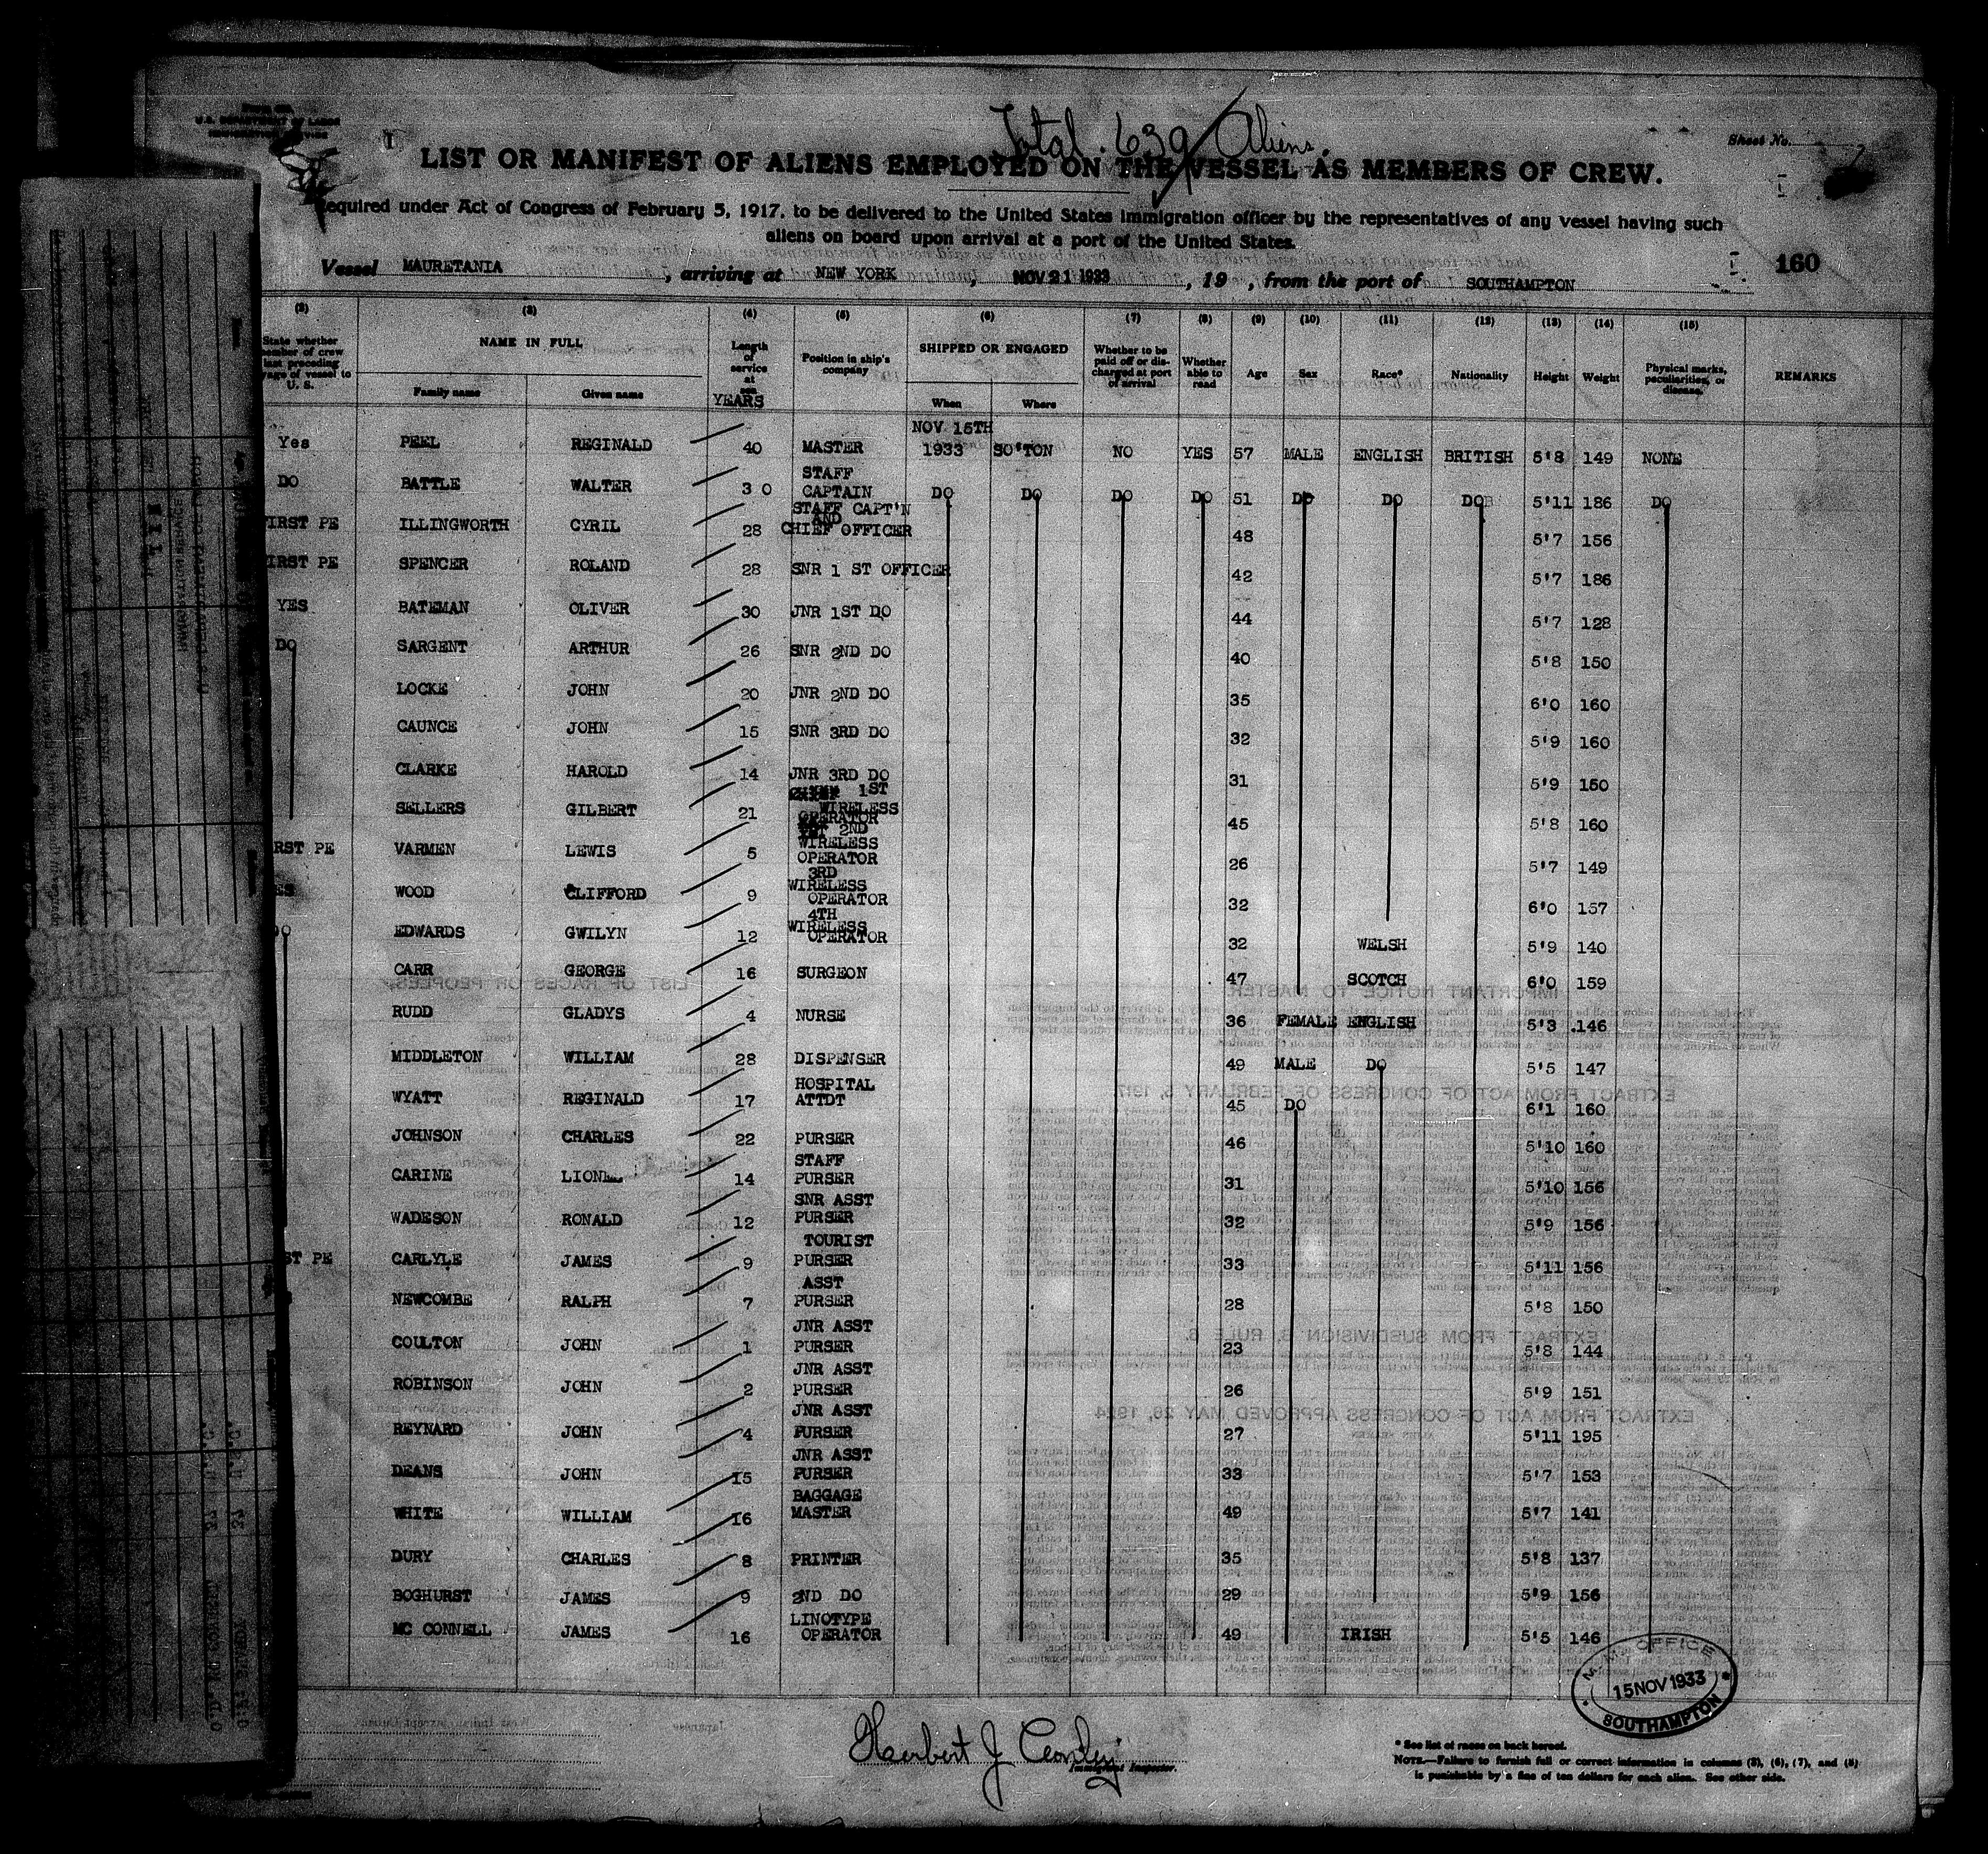 Total. 639 Aliens.
Sheet No.
LIST OR MANIFEST OF ALIENS EMPLOYED ON THE VESSEL AS MEMBERS OF CREW.
Required under Act of Congress of February 5, 1917, to be delivered to the United States immigration officer by the representatives of any vessel having such
aliens on board upon arrival at a port of the United States.
Vessel MAURETANIA, arriving at NEW YORK, NOV 21 1933, 19 , from the port of SOUTHAMPTON
160
(2) (3) (4) (5) (6) (7) (8) (9) (10) (11) (12) (13) (14) (15)
State whether member of crew last preceding voyage of vessel to U. S. NAME IN FULL Family name Given name Length of service at sea YEARS Position in ship's company SHIPPED OR ENGAGED When Where Whether to be paid off or discharged at port of arrival Whether able to read Age Sex Race* Nationality Height Weight Physical marks, peculiarities, or disease. REMARKS
Yes PEEL REGINALD 40 MASTER NOV 15TH 1933 SO'TON NO YES 57 MALE ENGLISH BRITISH 5'8 149 NONE
DO BATTLE WALTER 3 0 STAFF CAPTAIN DO DO DO DO 51 DO DO DO 5'11 186 DO
IRST PE ILLINGWORTH CYRIL 28 STAFF CAPT'N AND CHIEF OFFICER 48 5'7 156
IRST PE SPENCER ROLAND 28 SNR 1 ST OFFICER 42 5'7 186
YES BATEMAN OLIVER 30 JNR 1ST DO 44 5'7 128
DO SARGENT ARTHUR 26 SNR 2ND DO 40 5'8 150
LOCKE JOHN 20 JNR 2ND DO 35 6'0 160
CAUNCE JOHN 15 SNR 3RD DO 32 5'9 160
CLARKE HAROLD 14 JNR 3RD DO 31 5'9 150
SELLERS GILBERT 21 1ST WIRELESS OPERATOR 45 5'8 160
RST PE VARMEN LEWIS 5 2ND WIRELESS OPERATOR 26 5'7 149
ES WOOD CLIFFORD 9 3RD WIRELESS OPERATOR 32 6'0 157
DO EDWARDS GWILYN 12 4TH WIRELESS OPERATOR 32 WELSH 5'9 140
CARR GEORGE 16 SURGEON 47 SCOTCH 6'0 159
RUDD GLADYS 4 NURSE 36 FEMALE ENGLISH 5'3 146
MIDDLETON WILLIAM 28 DISPENSER 49 MALE DO 5'5 147
WYATT REGINALD 17 HOSPITAL ATTDT 45 DO 6'1 160
JOHNSON CHARLES 22 PURSER 46 5'10 160
CARINE LIONEL 14 STAFF PURSER 31 5'10 156
WADESON RONALD 12 SNR ASST PURSER 32 5'9 156
ST PE CARLYLE JAMES 9 TOURIST PURSER 33 5'11 156
NEWCOMBE RALPH 7 ASST PURSER 28 5'8 150
COULTON JOHN 1 JNR ASST PURSER 23 5'8 144
ROBINSON JOHN 2 JNR ASST PURSER 26 5'9 151
REYNARD JOHN 4 JNR ASST PURSER 27 5'11 195
DEANS JOHN 15 JNR ASST PURSER 33 5'7 153
WHITE WILLIAM 16 BAGGAGE MASTER 49 5'7 141
DURY CHARLES 8 PRINTER 35 5'8 137
BOGHURST JAMES 9 2ND DO 29 5'9 156
MC CONNELL JAMES 16 LINOTYPE OPERATOR 49 IRISH 5'5 146
OFFICE
15 NOV 1933
SOUTHAMPTON
Herbert J
Immigrant Inspector.
* See list of races on back hereof.
NOTE.—Failure to furnish full or correct information in columns (3), (6), (7), and (8)
is punishable by a fine of ten dollars for each alien. See other side.